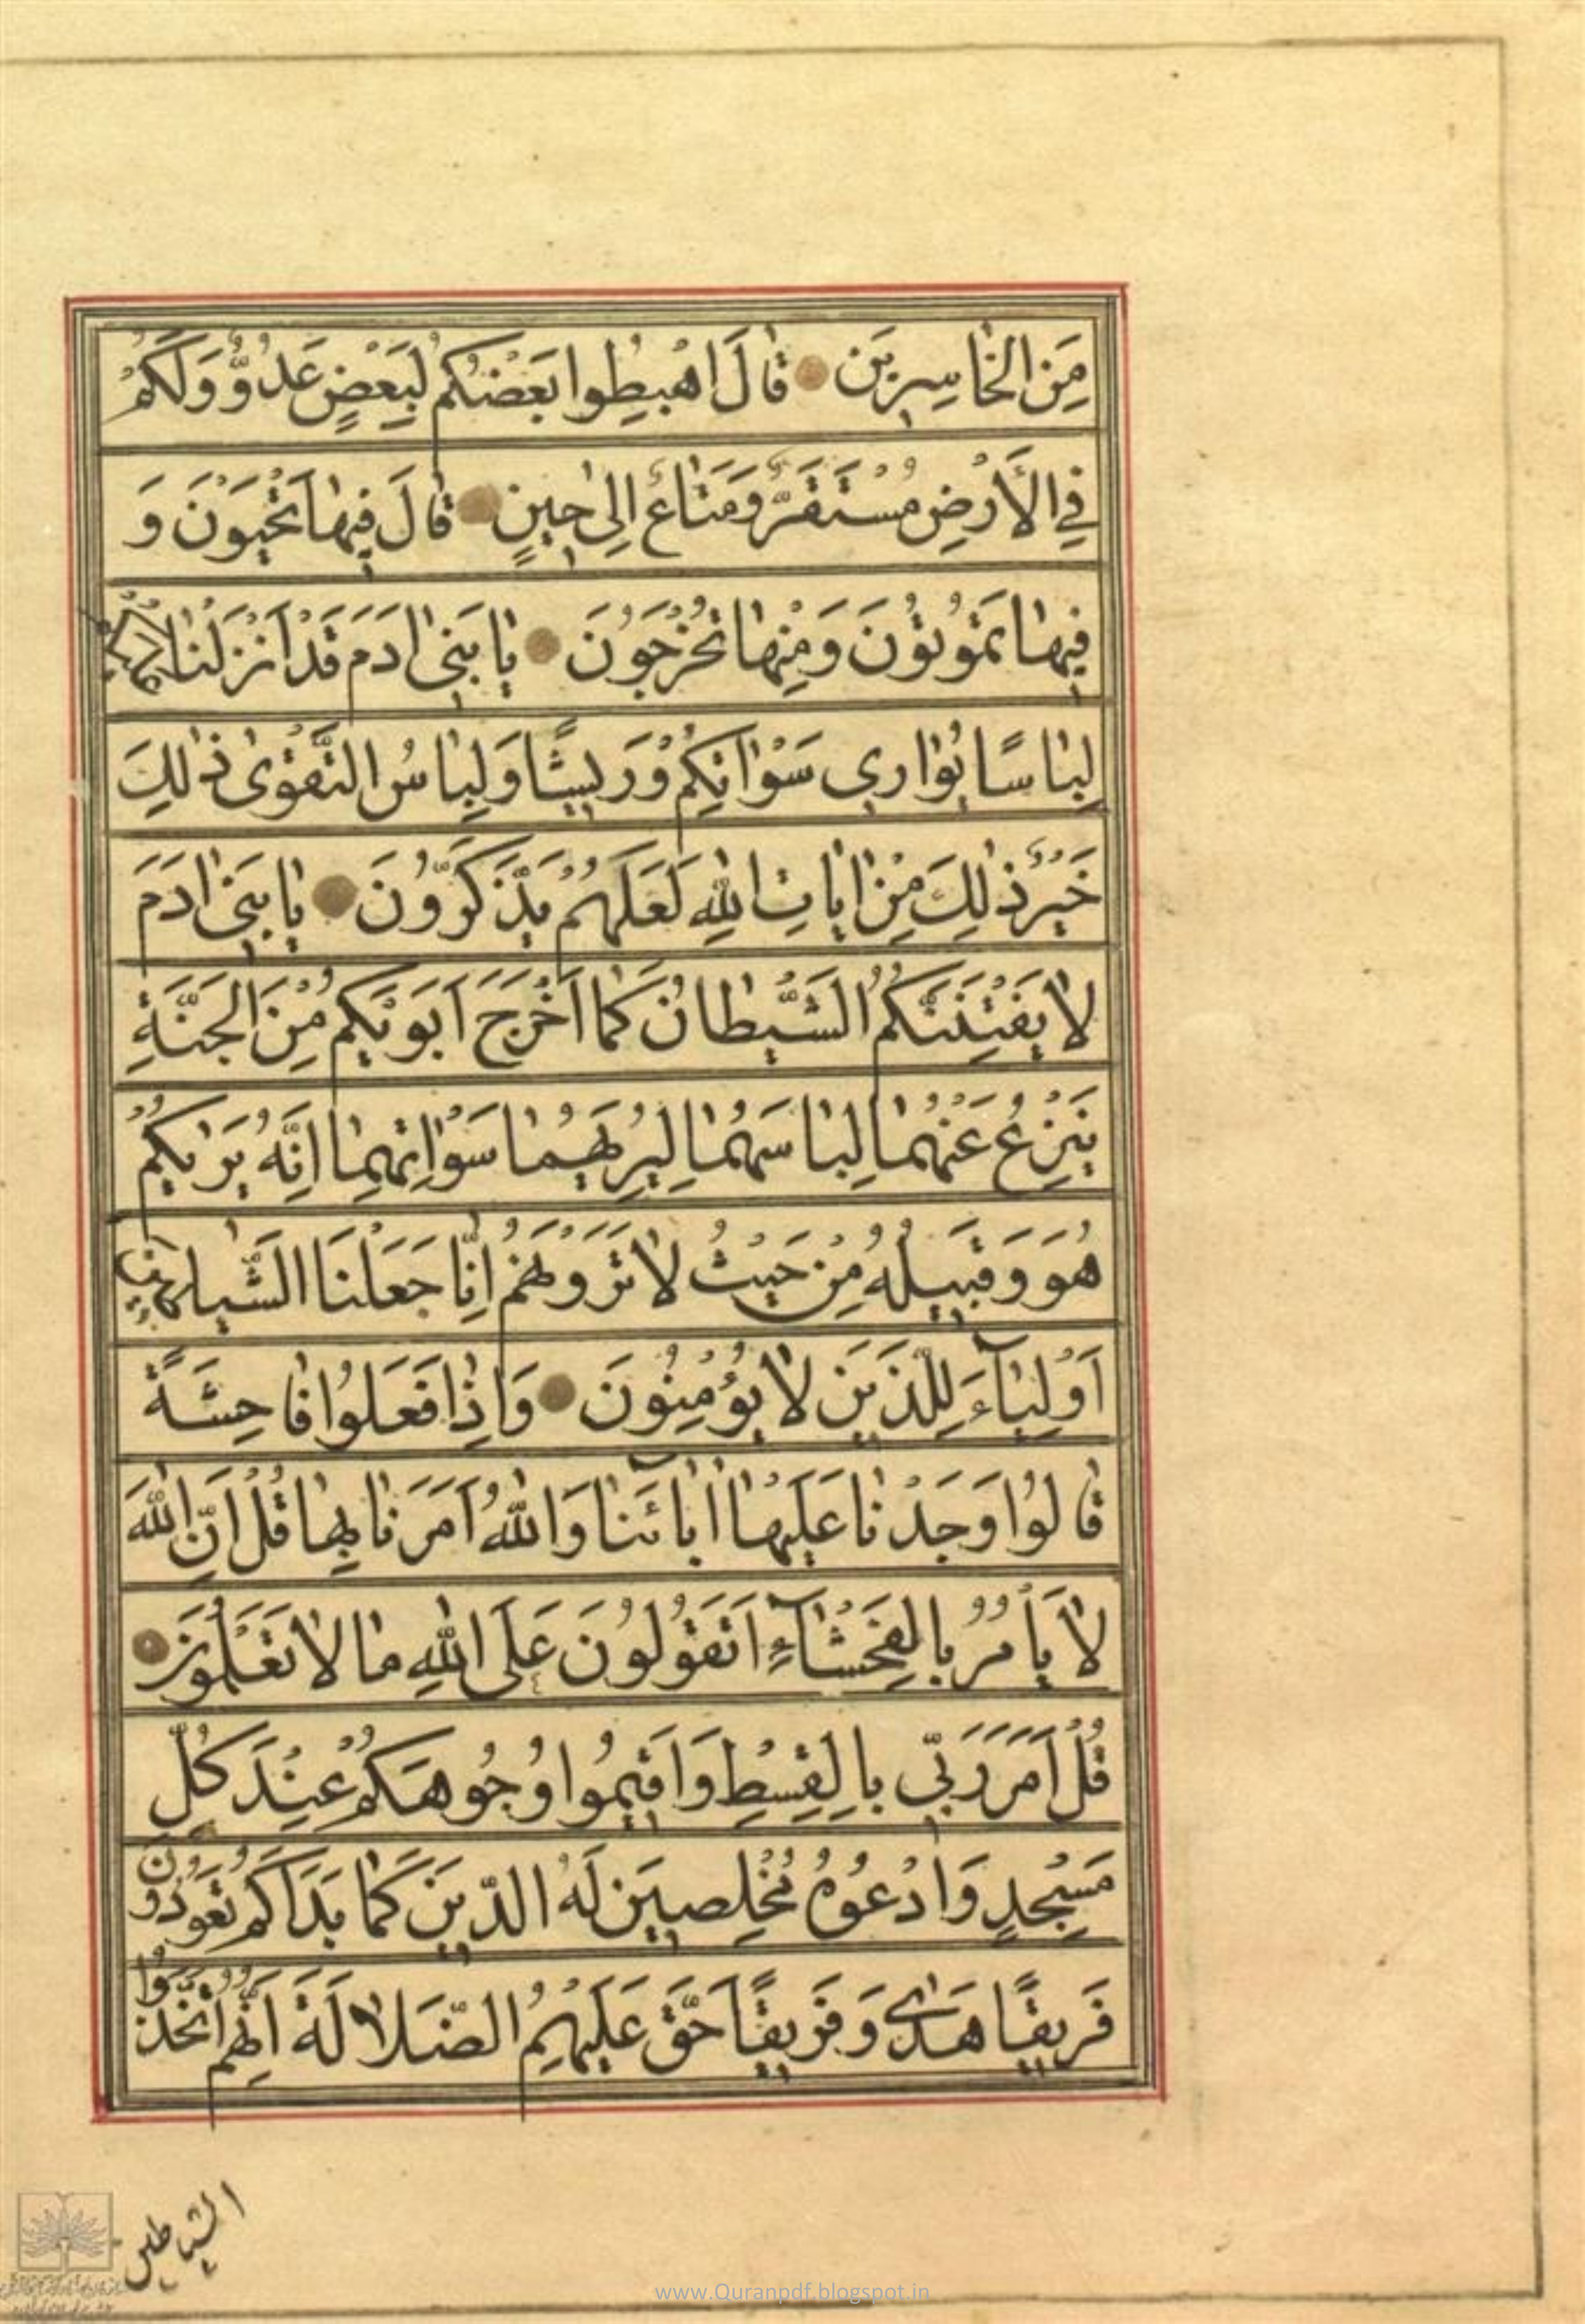 مِنَ الخَاسِرِينَ قَالَ اهْبِطُوا بَعْضُكُمْ لِبَعْضٍ عَدُوٌّ وَلَكُمْ
فِي الأَرْضِ مُسْتَقَرٌّ وَمَتَاعٌ اِلٰى حِينٍ قَالَ فِيهَا تَحْيَوْنَ وَ
فِيهَا تَمُوتُونَ وَمِنْهَا تُخْرَجُونَ يَا بَنِى اٰدَمَ قَدْ اَنْزَلْنَا عَلَيْكُمْ
لِبَاسًا يُوَارِي سَوْاٰتِكُمْ وَرِيشًا وَلِبَاسُ التَّقْوٰى ذٰلِكَ
خَيْرٌ ذٰلِكَ مِنْ اٰيَاتِ اللهِ لَعَلَّهُمْ يَذَّكَّرُونَ يَا بَنِى اٰدَمَ
لَا يَفْتِنَنَّكُمُ الشَّيْطَانُ كَمَا اَخْرَجَ اَبَوَيْكُمْ مِنَ الجَنَّةِ
يَنْزِعُ عَنْهُمَا لِبَاسَهُمَا لِيُرِيَهُمَا سَوْاٰتِهِمَا اِنَّهُ يَرٰيكُمْ
هُوَ وَقَبِيلُهُ مِنْ حَيْثُ لَا تَرَوْنَهُمْ اِنَّا جَعَلْنَا الشَّيَاطِينَ
اَوْلِيَآءَ لِلَّذِينَ لَا يُؤْمِنُونَ وَاِذَا فَعَلُوا فَاحِشَةً
قَالُوا وَجَدْنَا عَلَيْهَا اٰبَآئَنَا وَاللهُ اَمَرَنَا بِهَا قُلْ اِنَّ اللهَ
لَا يَأْمُرُ بِالفَحْشَآءِ اَتَقُولُونَ عَلَى اللهِ مَا لَا تَعْلَمُونَ
قُلْ اَمَرَ رَبِّي بِالقِسْطِ وَاَقِيمُوا وُجُوهَكُمْ عِنْدَ كُلِّ
مَسْجِدٍ وَادْعُوهُ مُخْلِصِينَ لَهُ الدِّينَ كَمَا بَدَاَكُمْ تَعُودُونَ
فَرِيقًا هَدٰى وَفَرِيقًا حَقَّ عَلَيْهِمُ الضَّلَالَةُ اِنَّهُمُ اتَّخَذُوا
الشياطين
www.Quranpdf.blogspot.in